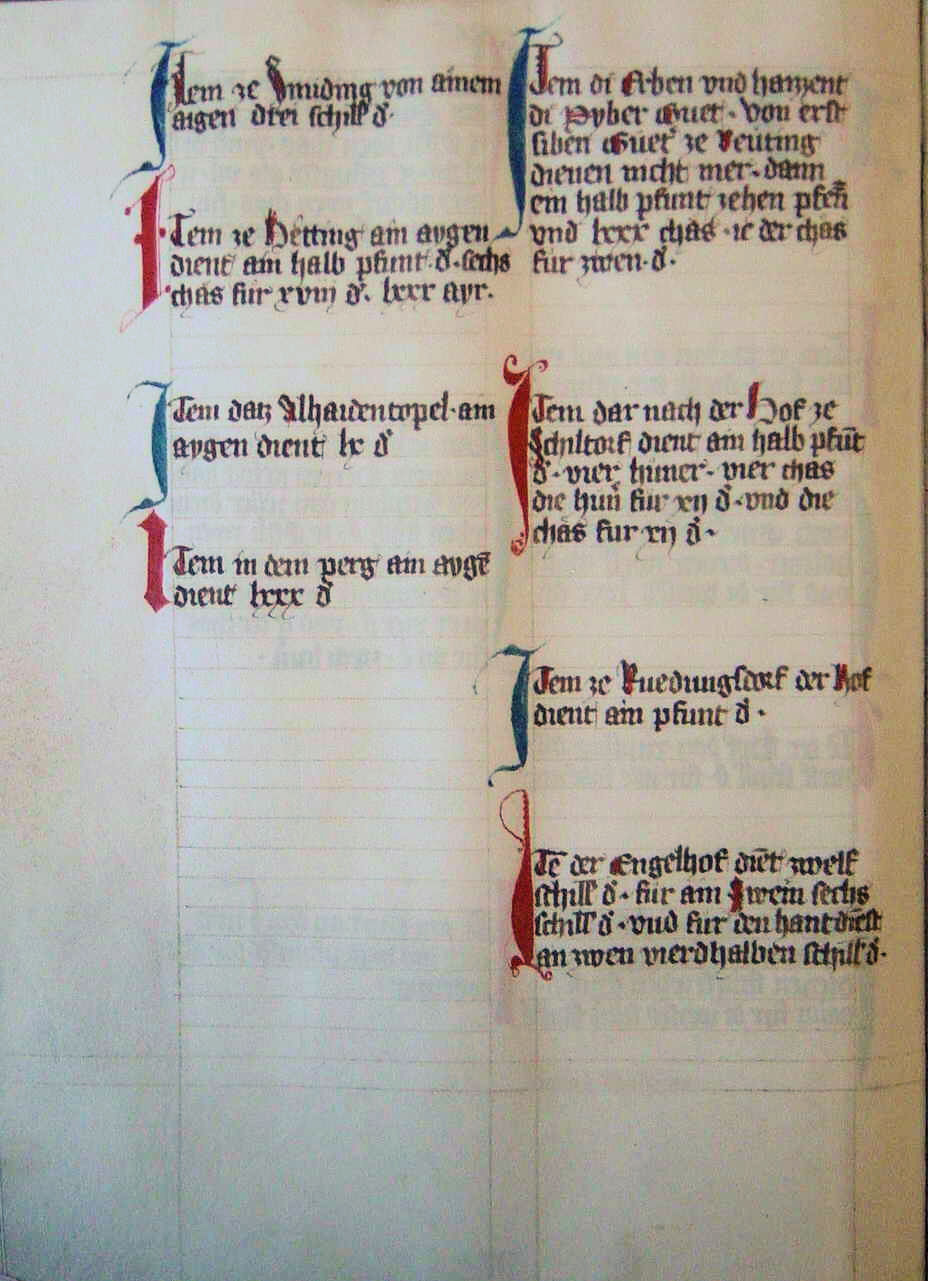 Item ze Smiding von ainem
aigen drei schill d.
Item ze Hetting ain aygen
dient ain halb pfunt d. sechs
chas fur xviij d. lxxx ayr.
Item datz Alhaidentopel ain
aygen dient lx d
Item in dem perg ain aygē
dient lxxx d
Item di Erben vnd hayzent
di Pyber Guet. Von erst
siben Guet ze Reuting
dienen nicht mer. dann
ein halb pfunt zehen pfen̄
vnd lxxx chas. ie der chas
fur zwen. d.
Item dar nach der Hof ze
Schiltorf dient ain halb pfūt
d. vier huner. vier chas
die hun̄ fur xij d. vnd die
chas fur xij d.
Item ze Ruedungsdorf der Hof
dient ain pfunt d.
Itē der Engelhof diēt zwelf
schill d. fur ain Swein sechs
schill d. vnd fur den hantdiēst
an zwen vierdhalben schill d.